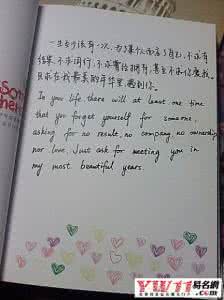 一生至少该有一次,为了某个人而忘了自己,不求有
结果,不求同行,不求曾经拥有,甚至不求你爱我,
只求在我最美的年华里,遇到你。
In your life, there will at least one time
that you forget yourself for someone,
asking for no result, no company, no ownership
nor love. Just ask for meeting you in
my most beautiful years.
YW11易名網